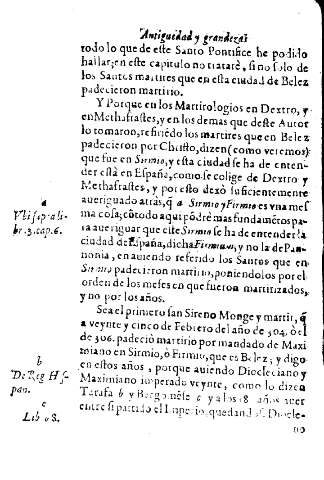 Antiguedad y grandezas
todo lo que de este Santo Pontifice he podido
hallar; en este capitulo no tratarè, si no solo de
los Santos martires que en esta ciudad de Belez
padecieron martirio.
Y Porque en los Martirologios en Dextro, y
en Methafrastes, y en los demas que deste Autor
lo tomaron, refiriẽdo los martires que en Belez
padecieron por Christo, dizen (como veremos)
que fue en Sirmio, y esta ciudad se ha de enten-
der està en España, como se colige de Dextro y
Methafrastes, y por esto dexò suficientemente
averiguado atràs, q̃ a Sirmio y Firmio es vna mes
ma cosa; cõ todo aqui põdrè mas fundamẽtos pa-
ra averiguar que este Sirmio se ha de entender la
ciudad de España, dicha Firmium, y no la de Pan-
nonia, en auiendo referido los Santos que en
Sirmio padecieron martirio, poniendolos por el
orden de los meses en que fueron martirizados,
y no por los años.
Sea el primero san Sireno Monge y martir, q̃
a veynte y cinco de Febrero del año de 304. ò el
de 306. padeciò martirio por mandado de Maxi
miano en Sirmio, ò Firmio, que es Belez; y digo
en estos años, porque auiendo Diocleciano y
Maximiano imperado veynte, como lo dizen
Tarafa b y c y a los 18 años auer
entre si partido el Imperio, quedando Diocle-
no
a
Vbi sup. a li-
br. 3. cap. 6.
b
De Reg. His-
pan.
c
Lib. 8.